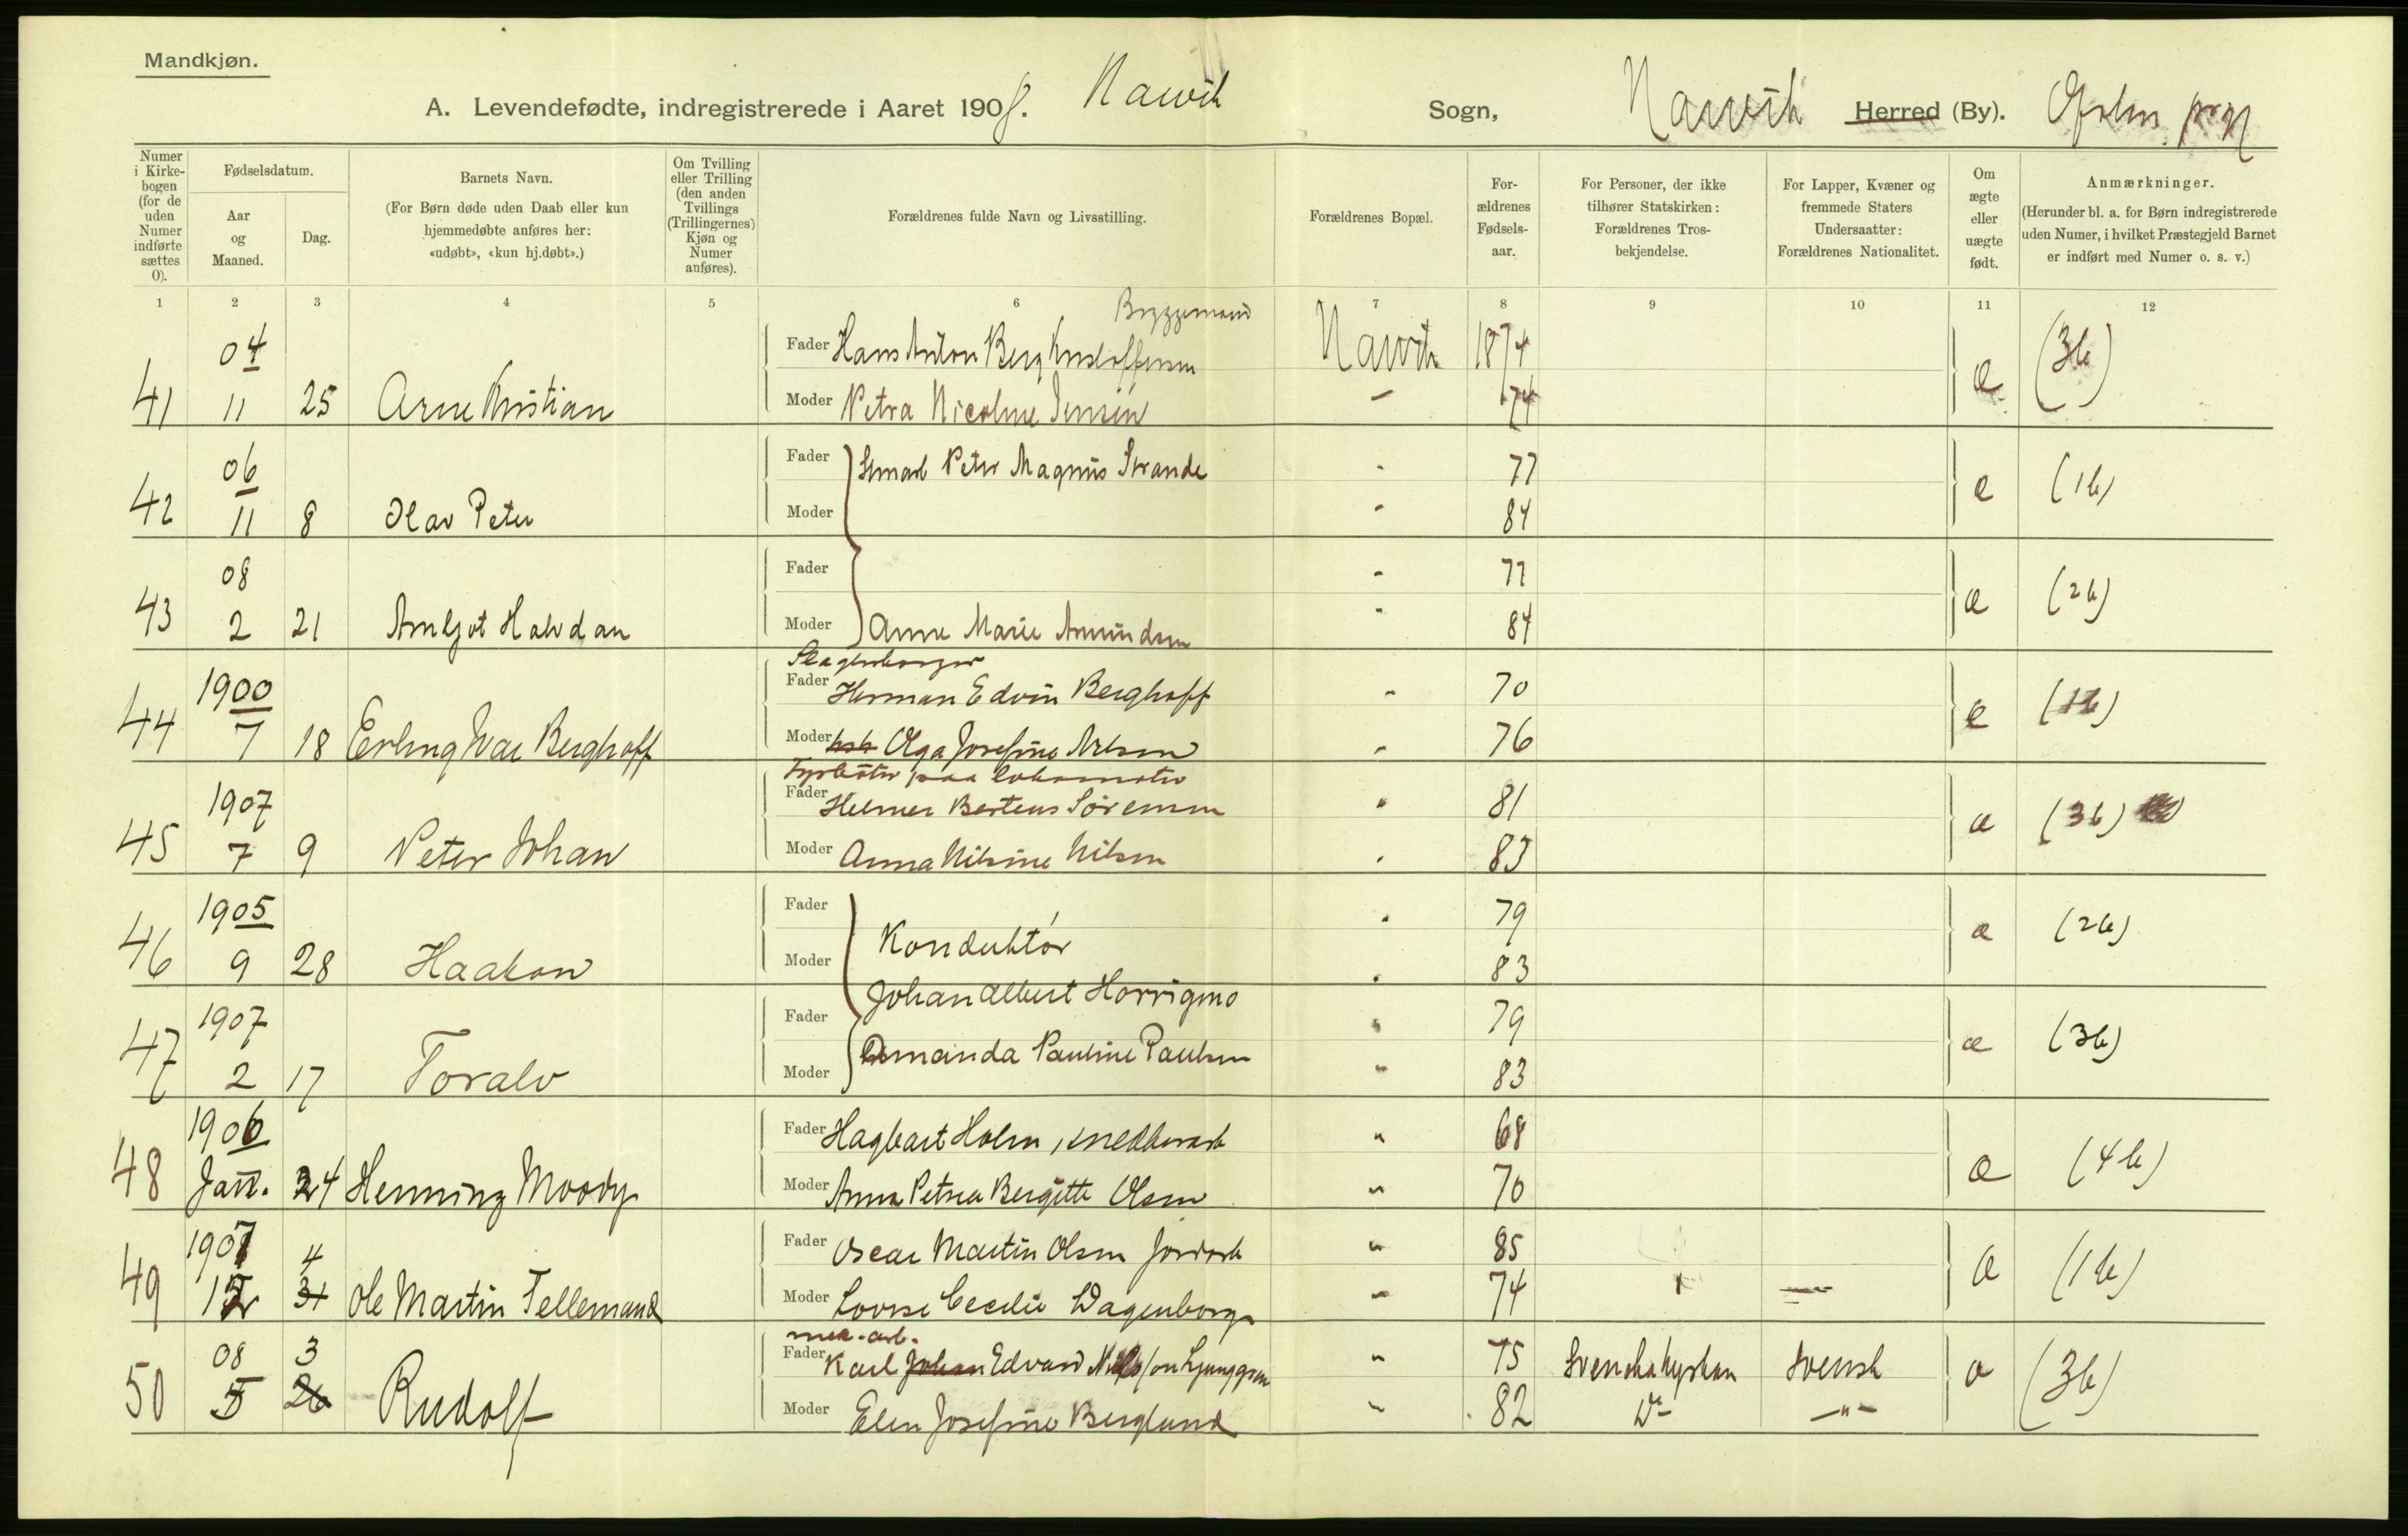 Mandkjøn.
A. Levendefødte, indregistrerede i Aaret 1908. Narvik Sogn, Narvik Herred (By). Ofoten
Numer i Kirkebogen (for de uden Numer indførte sættes 0).
Fødselsdatum.
Aar og Maaned.
Dag.
Barnets Navn.
(For Børn døde uden Daab eller kun hjemmedøbte anføres her: «udøbt», «kun hj.døbt».)
Om Tvilling eller Trilling (den anden Tvillings (Trillingernes) Kjøn og Numer anføres).
Forældrenes fulde Navn og Livsstilling.
Forældrenes Bopæl.
Forældrenes Fødselsaar.
For Personer, der ikke tilhører Statskirken: Forældrenes Trosbekjendelse.
For Lapper, Kvæner og fremmede Staters Undersaatter: Forældrenes Nationalitet.
Om ægte eller uægte født.
Anmærkninger.
(Herunder bl. a. for Børn indregistrerede uden Numer, i hvilket Præstegjeld Barnet er indført med Numer o. s. v.)
1 2 3 4 5 6 7 8 9 10 11 12
Fader Hans Anton Berg Kristoffersen Narvik 1874
41 04 11 25 Arne Kristian Moder Petra Nicoline Jensen - 74 (3b)
Fader Peter Magnus Strande - 77
42 06 11 8 Olav Peter Moder - 84 (1b)
Fader - 77
43 08 2 21 Arnljot Halvdan Moder Anne Marie Amundsen - 84 (2b)
Fader Herman Edvin Berghoff - 70
44 1900 7 18 Erling Ivar Berghoff Moder Olga Josefine Nilsen - 76
Fyrbøter paa lokomotiv
Fader Helmer Berteus Sørensen " 81
45 1907 7 9 Peter Johan Moder Anna Nilsine Nilsen - 83 æ (3b)
Fader - 79
46 1905 9 28 Haakon Moder Konduktør - 83 æ (2b)
Fader Johan Albert Horrigmo " 79
47 1907 2 17 Toralv Moder Amanda Pauline Paulsen " 83 æ (3b)
Fader Hagbart Holm, snedkerarb " 68
48 1906 Jan. 24 Henning Moody Moder Anna Petrea Bergitte Olsen " 70 æ (4b)
Fader Oscar Martin Olsen Jordarb " 85
49 1907 12 4 31 Ole Martin Tellemand Moder Lovise Cecilie Wagenborg " 74 æ (1b)
Fader Karl Johan Edvard Ljunggren " 75 Svenska kyrkan Svensk
50 08 5 3 26 Rudolf Moder Elen Josefine Berglund " 82 Do -"- (3b)